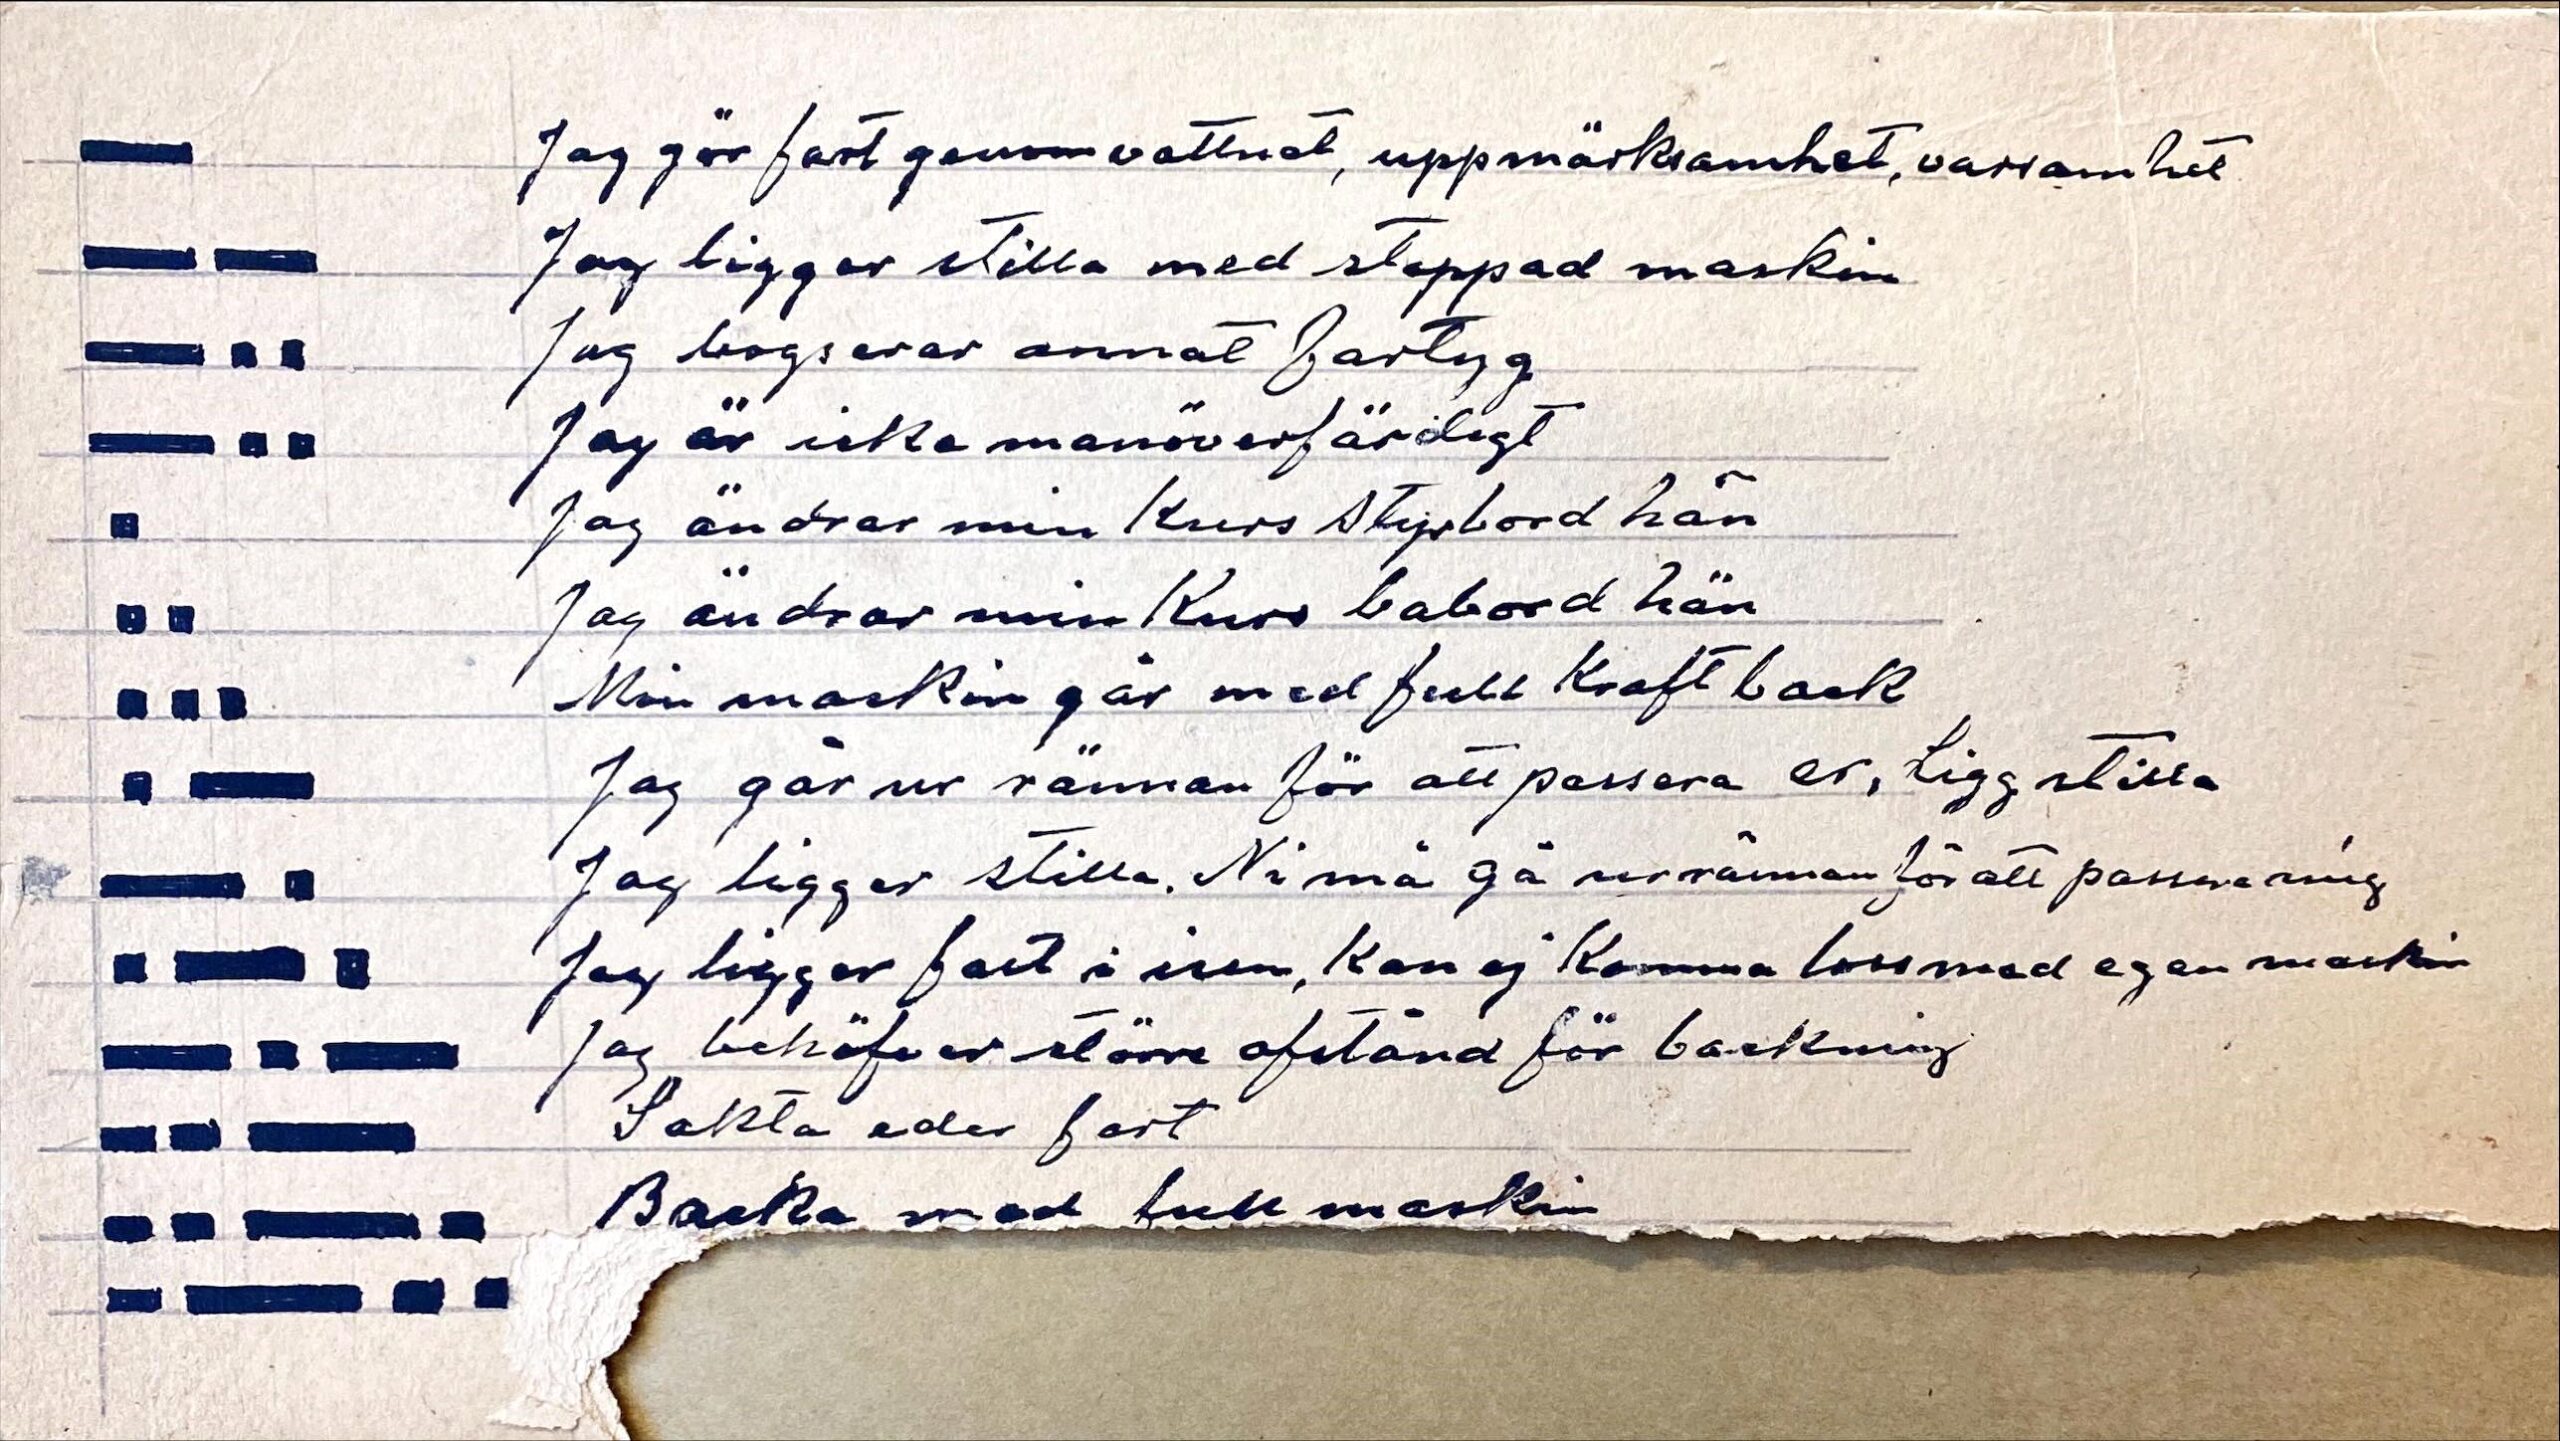 Jag gör fart genom vattnet, uppmärksamhet, varsamhet
Jag ligger stilla med stoppad maskin
Jag bogserar annat fartyg
Jag är icke manöverfärdigt
Jag ändrar min Kurs Styrbord hän
Jag ändrar min Kurs babord hän
Min maskin går med full Kraft back
Jag går ur rännan för att passera er, Ligg stilla
Jag ligger stilla. Ni må gå ur rännan för att passera mig
Jag ligger fast i isen, Kan ej Komma loss med egen maskin
Jag behöfver större afstånd för backning
Sakta eder fart
Backa med full maskin